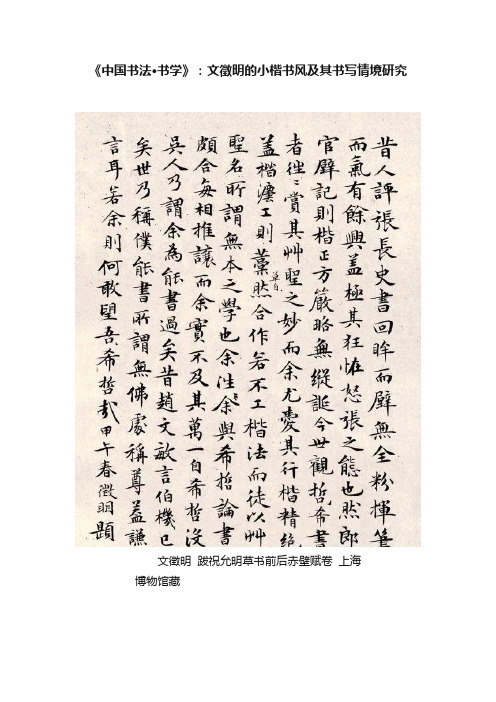 《中国书法•书学》：文徵明的小楷书风及其书写情境研究
昔人評張長史書回眸而壁無全粉揮筆
而氣有餘興蓋極其狂怪怒張之態也然郎
官壁記則楷正方嚴略無縱誕今世觀哲希書
者徃〻賞其艸聖之妙而余尤愛其行楷精絕
蓋楷灋工則藁草自然合作若不工楷法而徒以艸
聖名所謂無本之學也余往余與希哲論書
頗合每相推讓而余實不及其萬一自希哲沒
吳人乃謂余為能書過矣昔趙文敏言伯機已
矣世乃稱僕能書所謂無佛處稱尊蓋謙
言耳若余則何敢望吾希哲哉甲午春徵明題
文徵明 跋祝允明草书前后赤壁赋卷 上海
博物馆藏